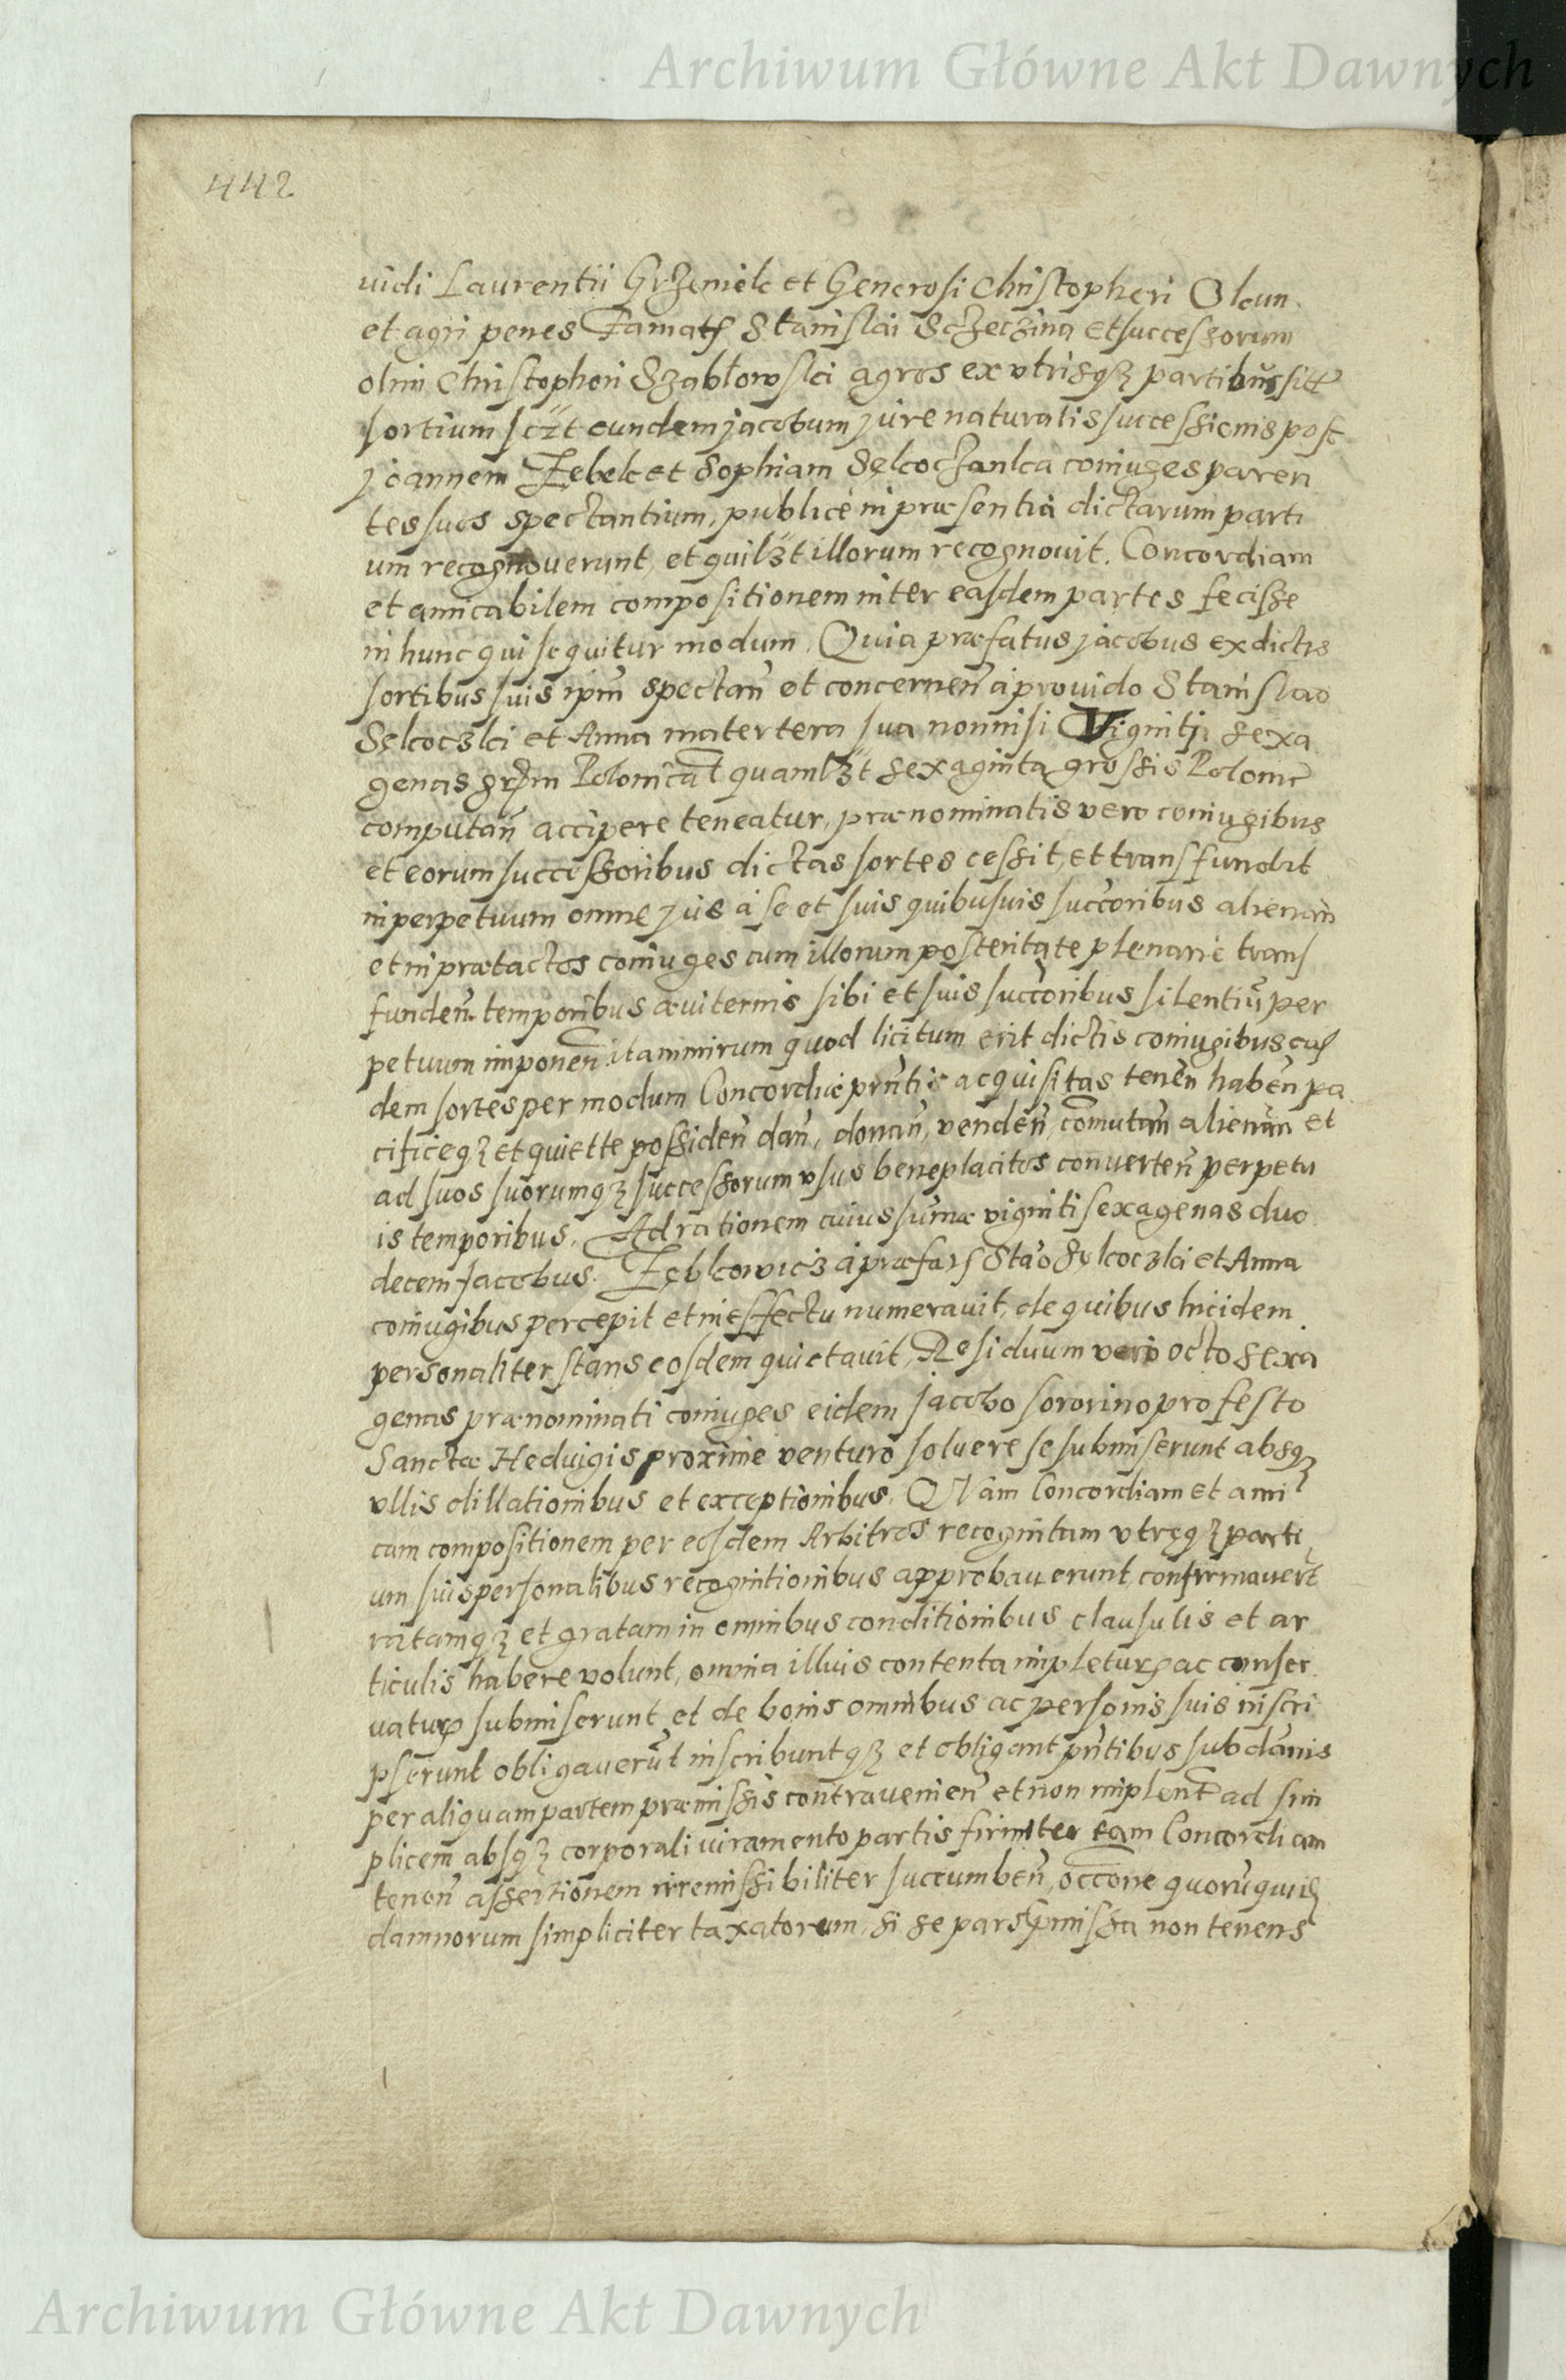 Archiwum Główne Akt Dawnych
442
vidi Laurentii Grzemek et Generosi Christopheri Olcun
et agri penes Stanislai Sczeczina et successorum
olim Christophori Szabłowski agros ex vtrisqȝ partibus sitt
sortium eundem jacobum jure naturalis successionis post
joannem Zebek et Sophiam Sękoczanka coniuges paren
tes suos spectantium, publice in præsentia dictarum parti
um recognouerunt, et quilȝt illorum recognouit. Concordiam
et amicabilem compositionem inter easdem partes fecisse
in hunc qui sequitur modum. Quia præfatus jacobus ex dictis
sortibus suis ipm̃ spectan̄ et concernen̄ à prouido Stanislao
Sękoczki et Anna matertera sua nonnisi Viginti sexa
genas Polonicał quamlȝt sexaginta grossis Polonic
computan̄ accipere teneatur, prænominatis vero coniugibus
et eorum successoribus dictas sortes cessit, et transfundit
in perpetuum omne jus à se et suis quibusuis succoribus alienan̄
et in prætactos coniuges cum illorum posteritate plenarie trans
funden̄ temporibus æuiternis sibi et suis succoribus silentiū per
petuum imponen̄ ita nimirum quod licitum erit dictis coniugibus eas
dem sortes per modum Concordiæ prñtis acquisitas tenen̄ haben̄ pa
cificeqȝ et quiette possiden̄ dan̄, donan̄, venden̄, com̄utan̄ alienan̄ et
ad suos suorumqȝ successorum vsus beneplacitos conuerten̄ perpetu
is temporibus. Ad rationem cuius sum̄æ viginti sexagenas duo
decem Jacobus Zębkowicz à Stão Sękoczki et Anna
coniugibus percepit et in effectu numerauit, de quibus hicidem
personaliter stans eosdem quietauit, Residuum vero octo sexa
genas prænominati coniuges eidem jacobo sororino pro festo
Sanctæ Heduigis proxime venturo soluere se submiserunt absqȝ
vllis dillationibus et exceptionibus. QVam Concordiam et ami
cam compositionem per eosdem Arbitros recognitam vtręqȝ parti
um suis personalibus recognitionibus approbauerunt, confirmauerūt
ratamqȝ et gratam in omnibus conditionibus clausulis et ar
ticulis habere volunt, omnia illius contenta impletur ac conser
vatur submiserunt et de bonis omnibus ac personis suis inscri
pserunt obligauerūt inscribuntqȝ et obligant prñtibus sub dānis
per aliquam partem præmissis contrauenien̄ et non implent ad sim
plicem absqȝ corporali iuramento partis firmiter eam Concordiam
tenen̄ assertionem irremissibiliter succumben̄, occõne quorū quid
damnorum simpliciter taxatorum, si se pars p̄missa non tenens
Archiwum Główne Akt Dawnych